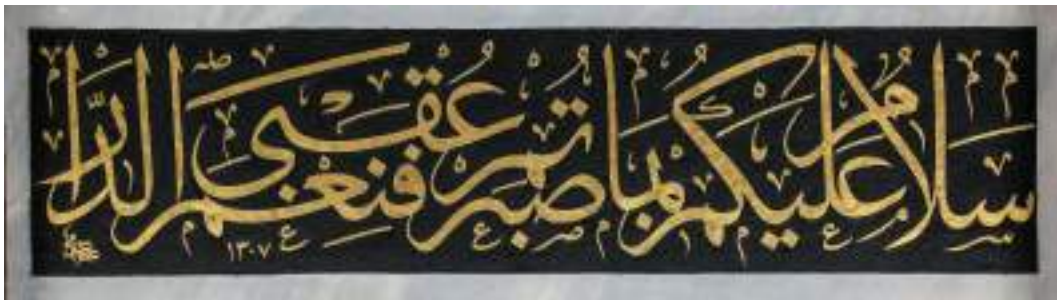 سَلَامٌ عَلَيْكُمْ بِمَا صَبَرْتُمْ فَنِعْمَ عُقْبَى الدَّارِ
١٣٠٧